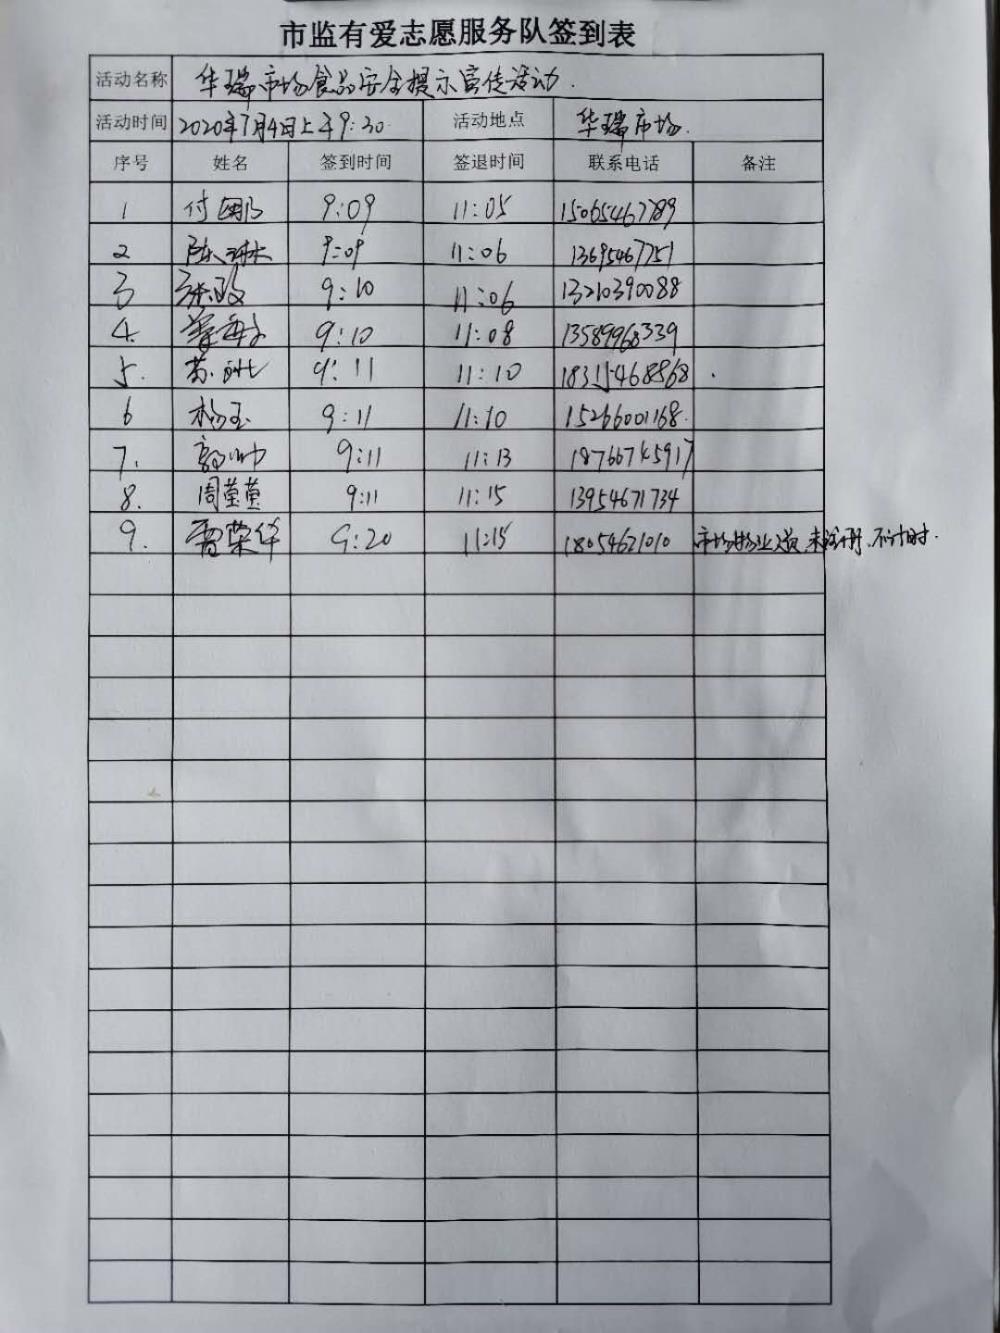 市监有爱志愿服务队签到表
活动名称 华瑞市场食品安全提示宣传活动.
活动时间 2020年7月4日上午9:30 活动地点 华瑞市场.
序号 姓名 签到时间 签退时间 联系电话 备注
1 付娜 9:09 11:05 15065467789
2 陈琳 9:09 11:06 13695467751
3 张政 9:10 11:06 13210390088
4. 9:10 11:08 13589968339
5. 苏 9:11 11:10 18315468868
6 杨玉 9:11 11:10 15266001168.
7. 郭帅 9:11 11:13 18766745917
8. 周莹莹 9:11 11:15 13954671734
9. 曹荣华 9:20 11:15 18054621010 市场物业人员,未注册.不计时.